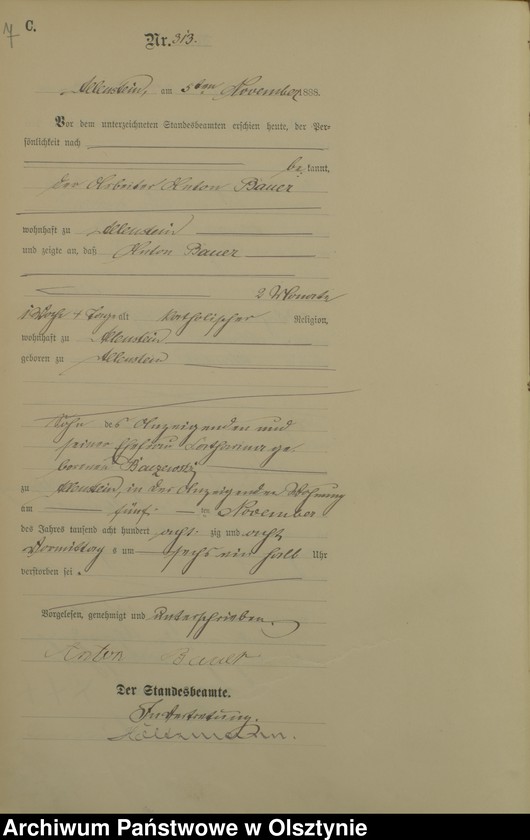 C.
Nr. 313.
Allenstein, am 5ten November 1888.
Vor dem unterzeichneten Standesbeamten erschien heute, der Per-
sönlichkeit nach
bekannt,
der Arbeiter Anton Bauer
wohnhaft zu Allenstein
und zeigte an, daß Anton Bauer
2 Monate
4 Tage alt katholischer Religion,
wohnhaft zu Allenstein
geboren zu Allenstein
Sohn des Anzeigenden und
seiner Ehefrau Catharina ge
borenen
zu Allenstein, in des Anzeigenden Wohnung
am fünf ten November
des Jahres tausend acht hundert acht zig und acht
Vormittag s um sechs ein halb Uhr
verstorben sei.
Vorgelesen, genehmigt und unterschrieben.
Anton Bauer
Der Standesbeamte.
In Vertretung.
Archiwum Państwowe w Olsztynie